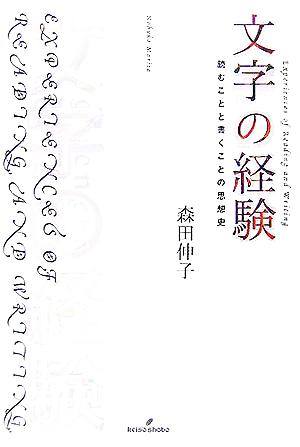 文字の経験
Experiences of Reading and Writing
読むことと書くことの思想史
森田伸子
Nobuko Morita
EXPERIENCES OF
READING AND WRITING
keiso shobo